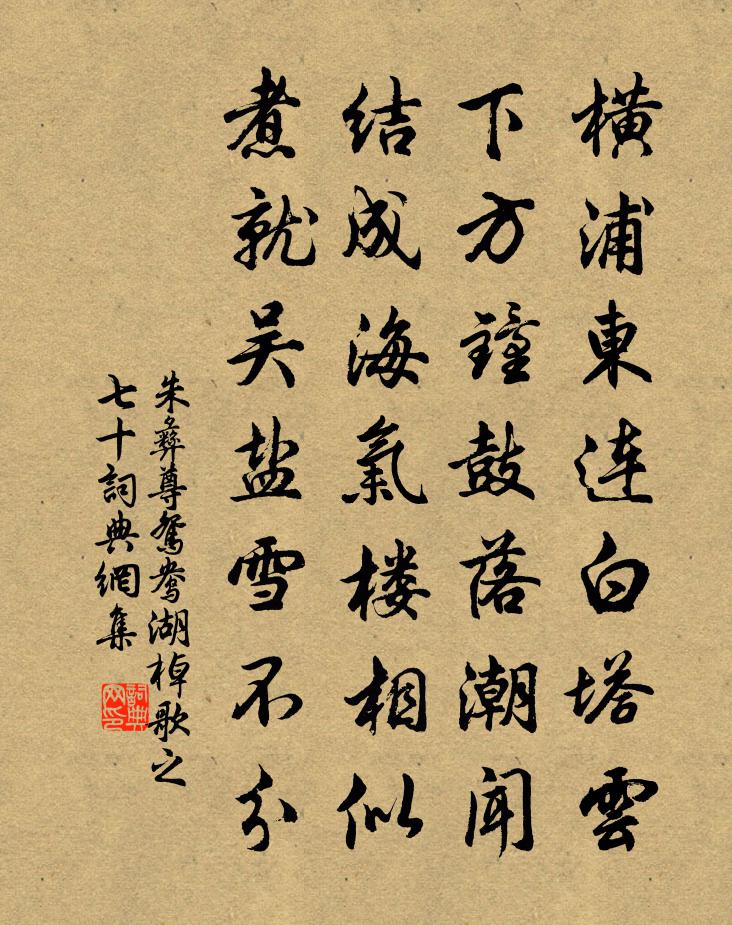 橫浦東連白塔雲
下方鐘鼓落潮聞
結成海氣樓相似
煮就吴盐雪不分
朱彝尊鴛鴦湖棹歌之
七十詞典網集
詞典网印